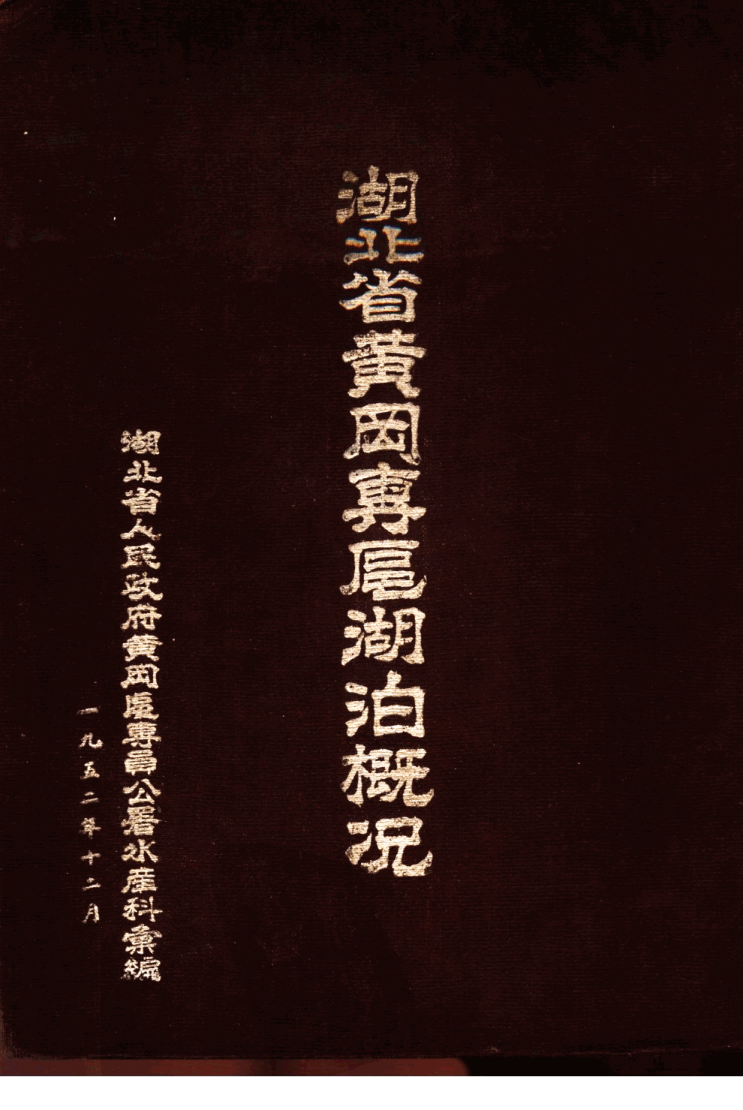 湖北省黄岡專區湖泊概况
湖北省人民政府黄岡區專員公署水產科彙編
一九五二年十二月